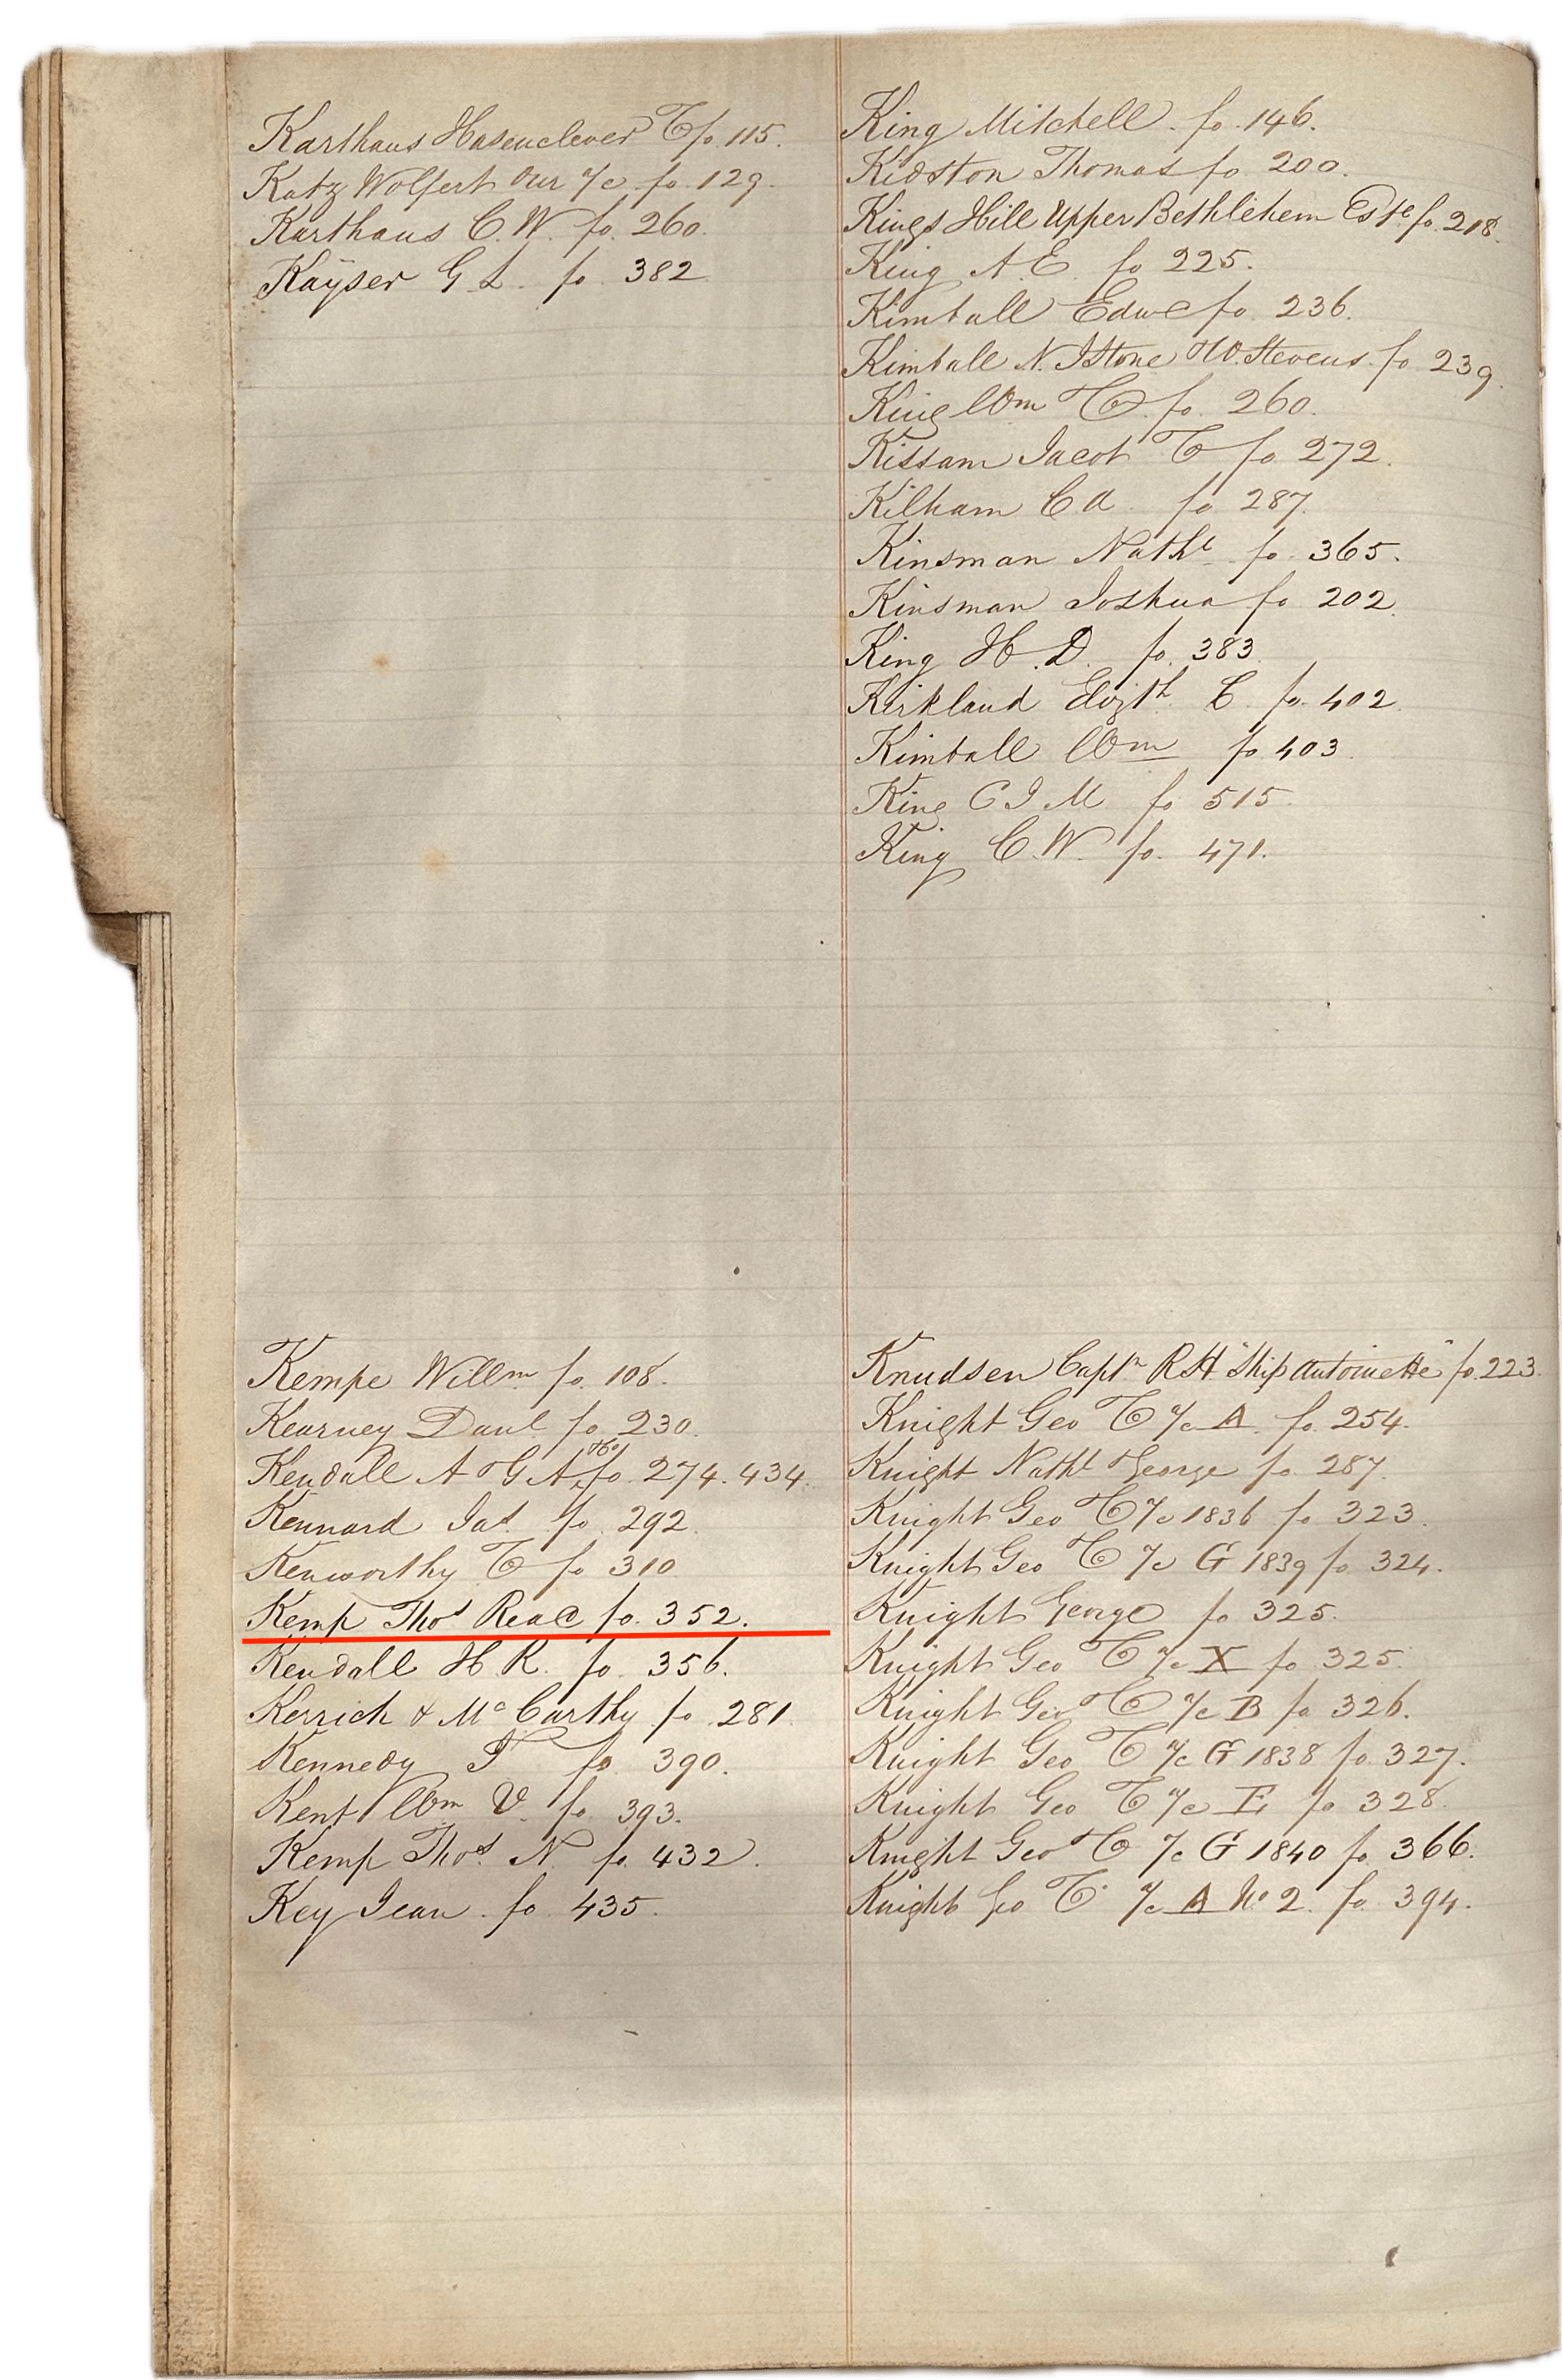 Karthaus Hasenclever & Co fo. 115.
Katz Wolfert our a/c fo. 129.
Karthaus C. W. fo. 260.
Kayser G L. fo. 382
Kempe Willm fo. 108.
Kearney Danl fo 230.
Kendall A & G A & Co fo 274. 434.
Kennard Jas. fo. 292.
Kenworthy & Co fo 310
Kemp Thos Read fo. 352.
Kendall H R. fo. 356.
Kerrich & McCarthy fo. 281.
Kennedy T fo. 390.
Kent Wm V. fo. 393.
Kemp Thos. N. fo. 432.
Key Jean. fo. 435.
King Mitchell. fo. 146.
Kidston Thomas fo. 200.
Kings Hill Upper Bethlehem Este fo. 218.
King A. E. fo 225.
Kimball Edwd fo. 236.
Kimball N. I Stone & W. Stevens. fo 239.
King Wm & Co. fo. 260.
Kissam Jacob & Co fo. 272.
Kilham C A. fo 287.
Kinsman Nathl fo. 365.
Kinsman Joshua fo 202.
King H. D. fo. 383
Kirkland Elizth. C. fo. 402.
Kimball Wm fo. 403.
King C J M. fo 515.
King C. W. fo. 471.
Knudsen Captn R H "Ship Antoinette" fo. 223.
Knight Geo & Co a/c A. fo. 254.
Knight Nathl & George fo 287.
Knight Geo & Co a/c 1836 fo 323.
Knight Geo & Co a/c G 1839 fo 324.
Knight George fo 325.
Knight Geo & Co a/c X fo 325.
Knight Geo & Co a/c B fo 326.
Knight Geo & Co a/c G 1838 fo. 327.
Knight Geo & Co a/c E fo 328.
Knight Geo & Co a/c G 1840 fo 366.
Knight Geo & Co. a/c A No 2. fo. 394.